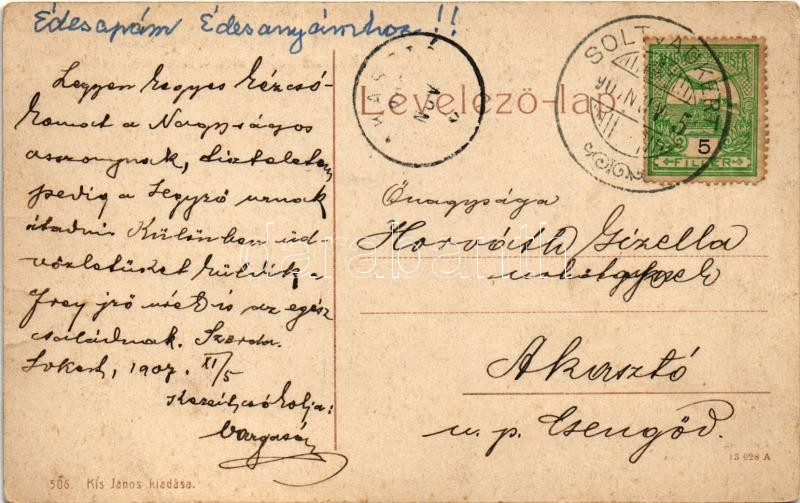 Édesapám Édesanyámhoz!!
Legyen kegyes kézcsó-
komat a Nagyságos
asszonynak, tiszteletem
pedig a Jegyző urnak
átadni Különben üd-
vözletüket küldik a
Frey az egész
családnak. Szerda.
1907. XI/5
Kezeit csókolja:
Levelező-lap.
SOLTVADKERT
5
FILLÉR
Őnagysága
Horváth Gizella
Akasztó
u. p. Csengőd.
506. Kis János kiadása.
13 028 A
darabanth